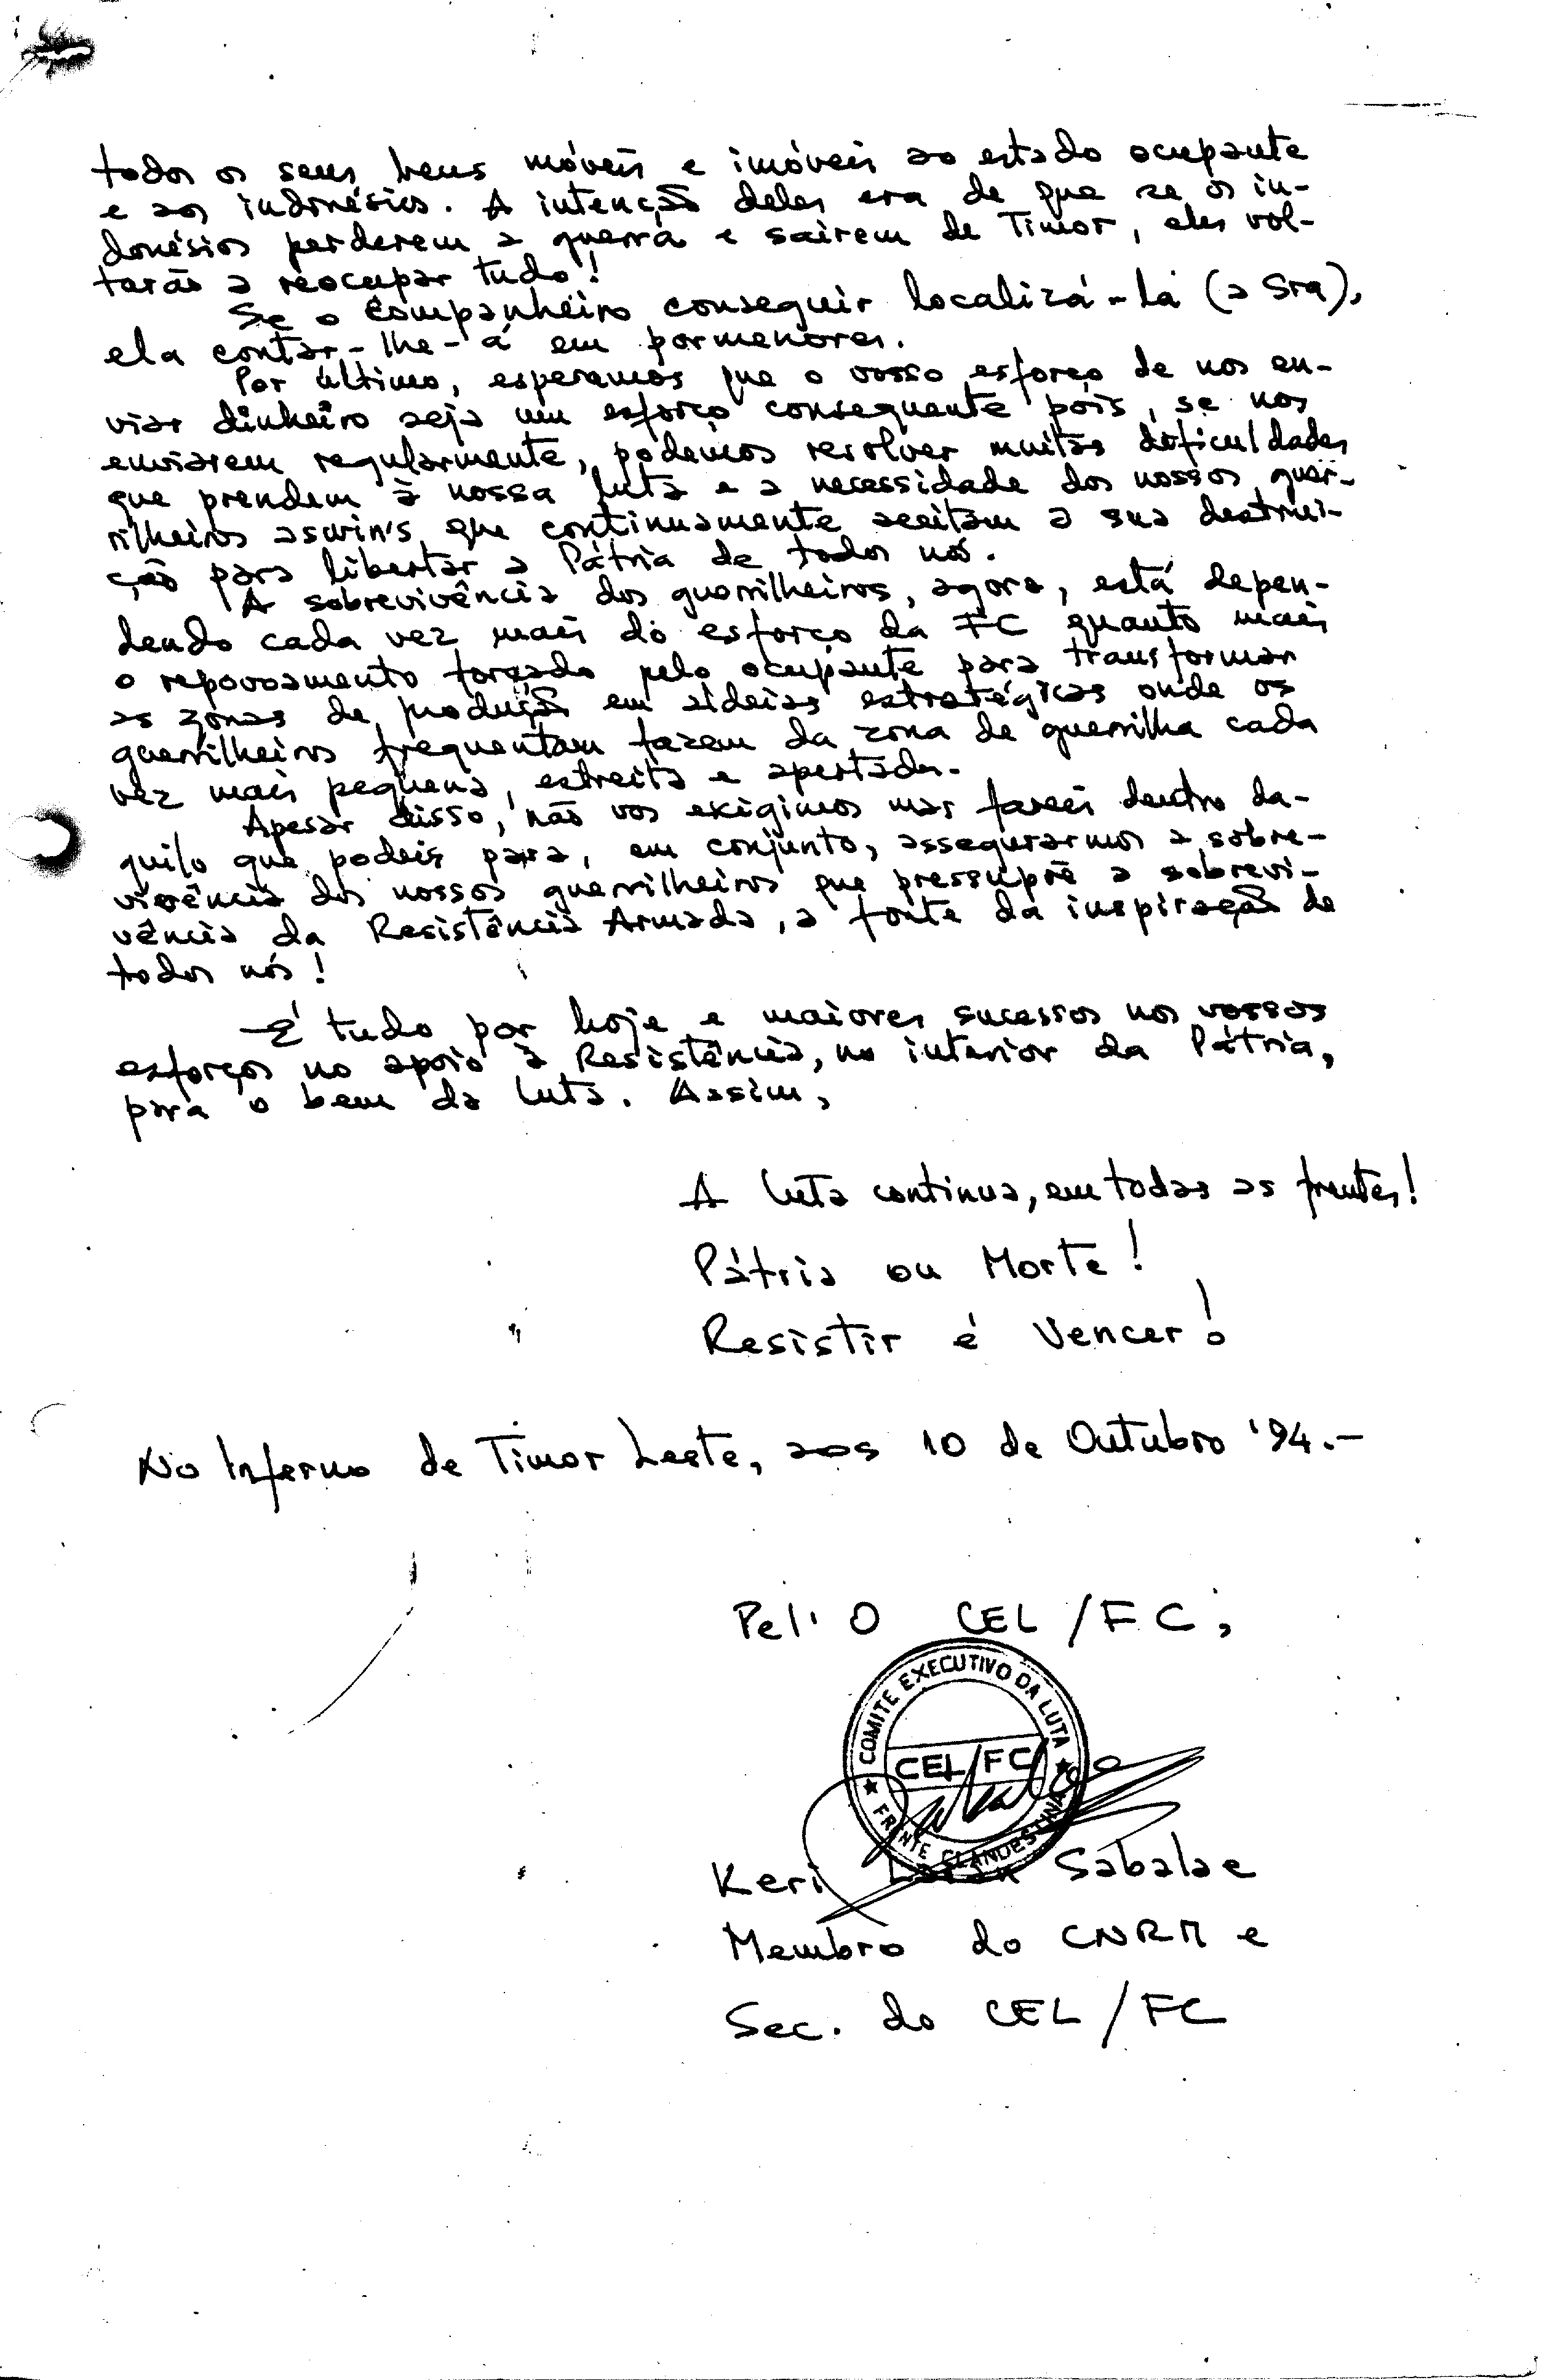 todos os seus bens móveis e imóveis ao estado ocupante
e aos indonésios. A intenção deles era de que se os in-
donésios perderem a guerra e sairem de Timor, eles vol-
tarão a reocupar tudo!
Se o Companheiro conseguir localizá-la (a Sra),
ela contar-lhe-á em pormenores.
Por último, esperamos que o vosso esforço de nos en-
viar dinheiro seja um esforço consequente pois, se nos
enviarem regularmente, podemos resolver muitas dificuldades
que prendem à nossa luta e a necessidade dos nossos guer-
rilheiros aswin's que continuamente aceitam a sua destrui-
ção para libertar a Pátria de todos nós.
A sobrevivência dos guerrilheiros, agora, está depen-
dendo cada vez mais do esforço da FC quanto mais
o repovoamento forçado pelo ocupante para transformar
as zonas de produção em aldeias estratégicas onde os
guerrilheiros frequentam fazem da zona de guerrilha cada
vez mais pequena, estreita e apertada.
Apesar disso, não vos exigimos mas fazei dentro da-
quilo que podeis para, em conjunto, assegurarmos a sobre-
vivência dos nossos guerrilheiros que pressupõe a sobrevi-
vência da Resistência Armada, a fonte da inspiração de
todos nós!
É tudo por hoje e maiores sucessos nos vossos
esforços no apoio à Resistência, no interior da Pátria,
para o bem da luta. Assim,
A luta continua, em todas as frentes!
Pátria ou Morte!
Resistir é Vencer!
No Inferno de Timor Leste, aos 10 de Outubro '94.-
Pel' O CEL/FC,
COMITE EXECUTIVO DA LUTA
CEL/FC
FRENTE CLANDESTINA
Keri Laran Sabalae
Membro do CNRM e
Sec. do CEL/FC